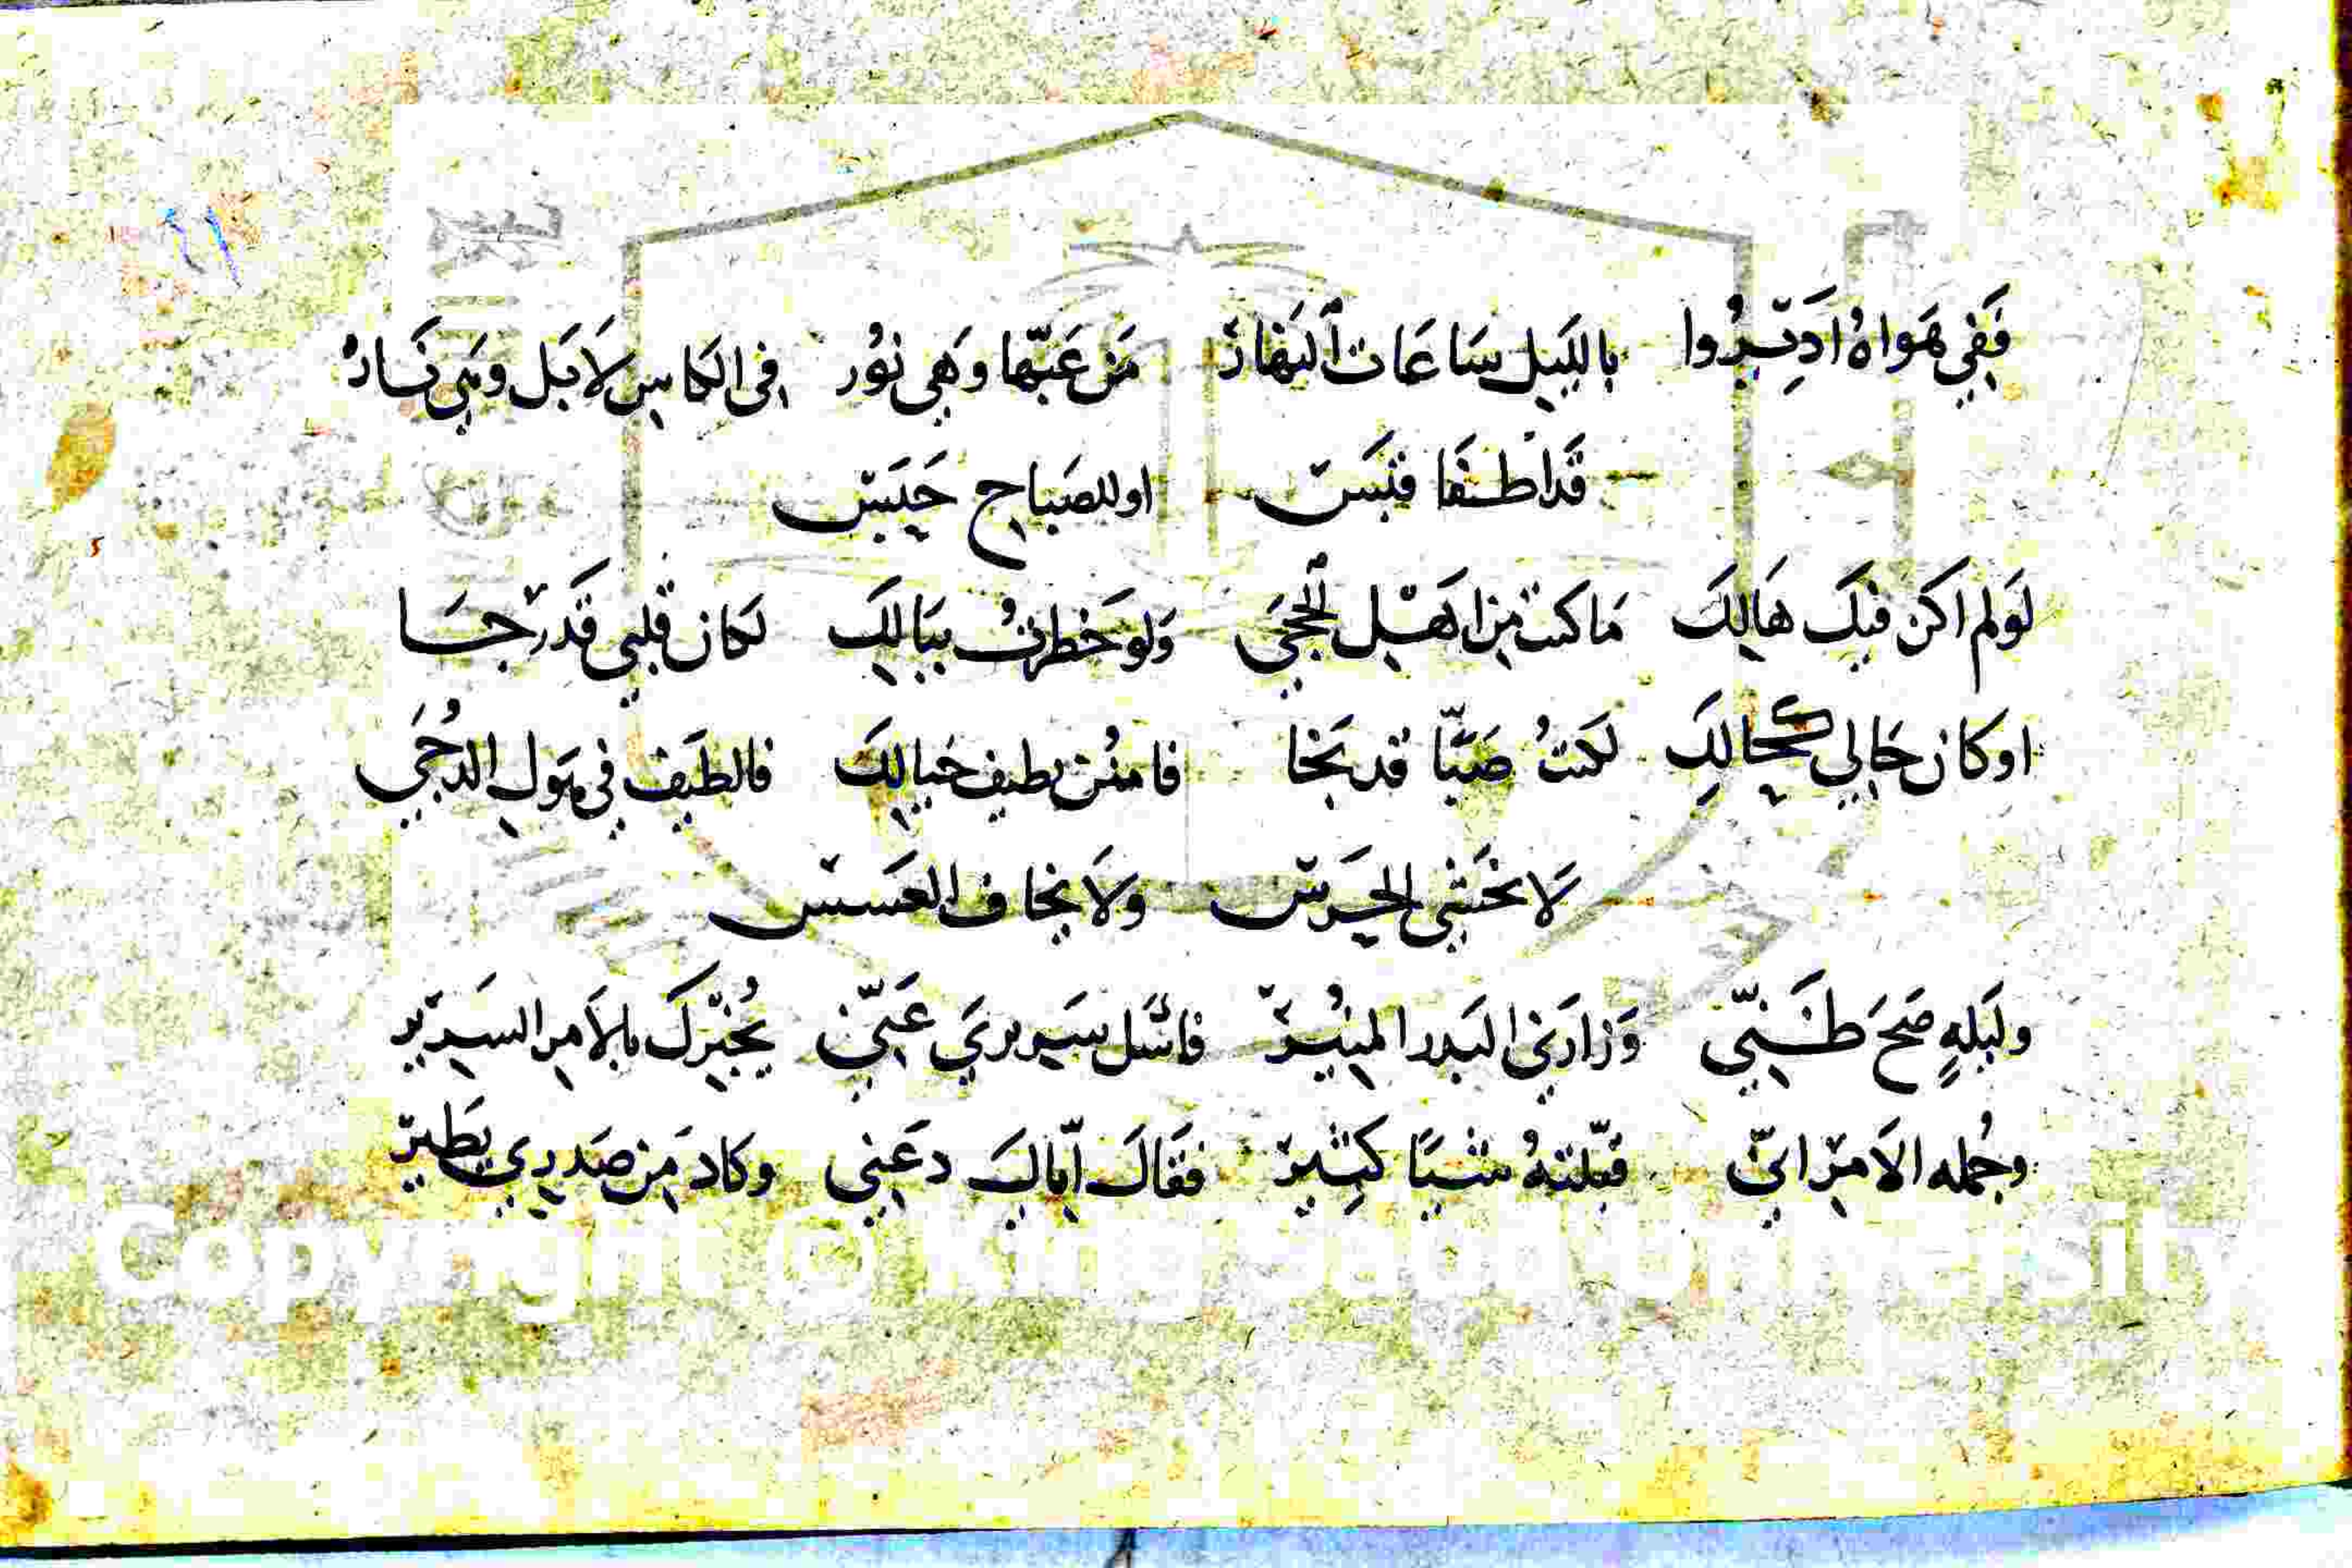 فَفِي هَوَاهُ ادِيرُوا بالليل سَاعَات النَهَار مَن عَبّها وهي نُور في الكاس لا بَل وهي نَار
قَد اطفَا قَبَس او للصَباح
لَو لم اكن فيك هَالِك مَا كنت من اهل الحجَى وَلو خَطرتُ ببَالِك لكان قلبي قَد رَجَا
او كان حَالي كحالك لكنتُ صَبًّا قد نجَا فامنُن بطيف خيالك فالطَيف في هَول الدُجَى
لا نخشى الحَرَس ولا نخاف العَسَس
وليلةٍ صَح ظَنّي وَزارَني البَدر المنير فاسْئل سَريري عَنّي يُخبرك بالأمر السَرير
وجُمله الامر انّي قبّلتهُ شيًا كثير فقَالَ ايّاك دعَني وكاد من صَدري يَطير